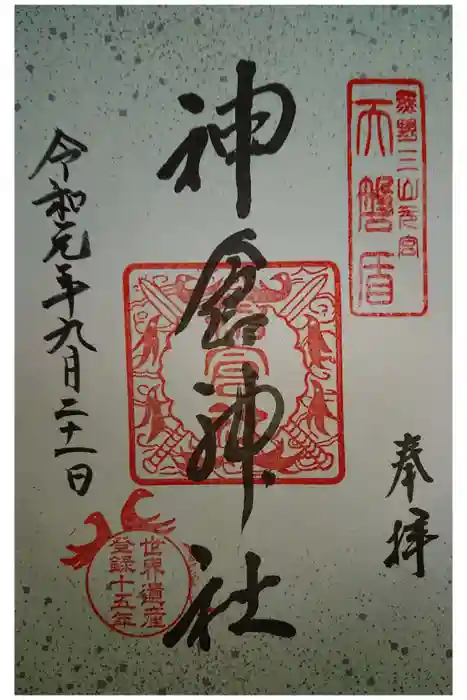 熊野三山元宮
天磐盾
奉拝
神倉神社
世界遺産
登録十五年
令和元年九月二十一日